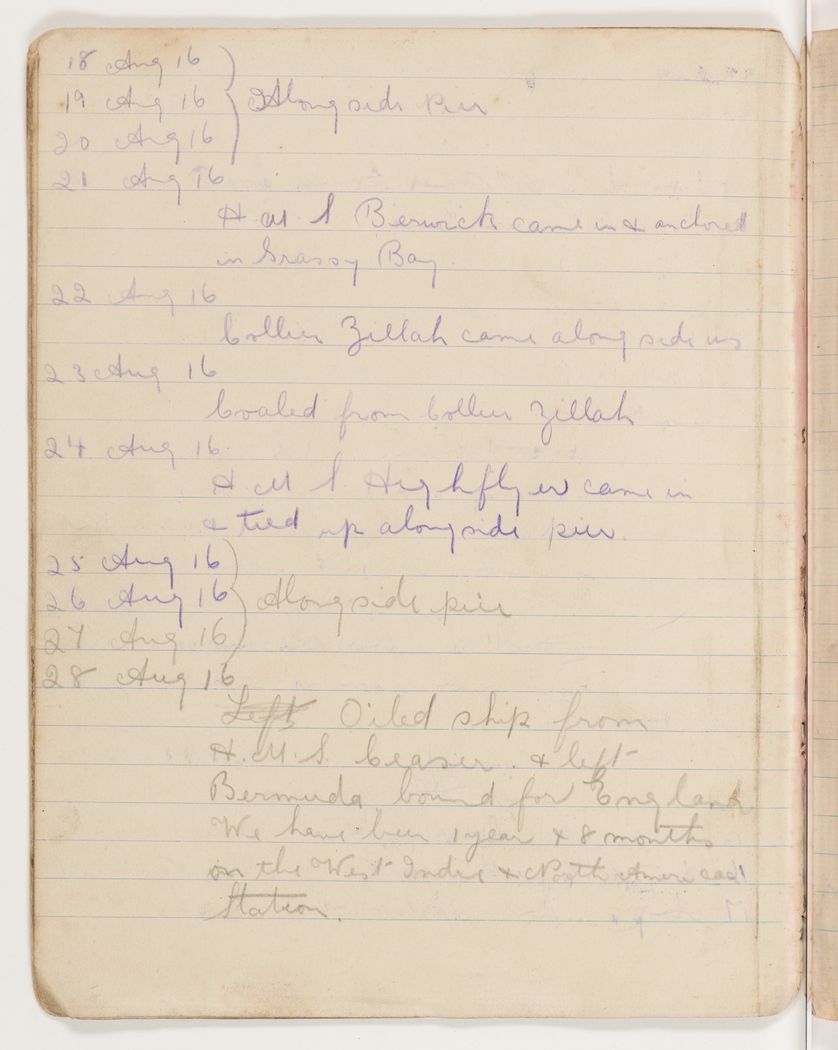 18 Aug 16
19 Aug 16 Alongside Pier
20 Aug 16
21 Aug 16
H M S Berwick came in & anchored
in Grassy Bay
22 Aug 16
Collier Zillah came along side us
23 Aug 16
Coaled from Collier Zillah
24 Aug 16.
H M S Highflyer came in
& tied up alongside pier.
25 Aug 16
26 Aug 16 Alongside pier
27 Aug 16
28 Aug 16
Left Oiled ship from
H.M.S. & left
Bermuda bound for England
We have been 1 year & 8 months
on the West Indie & North American
Station.